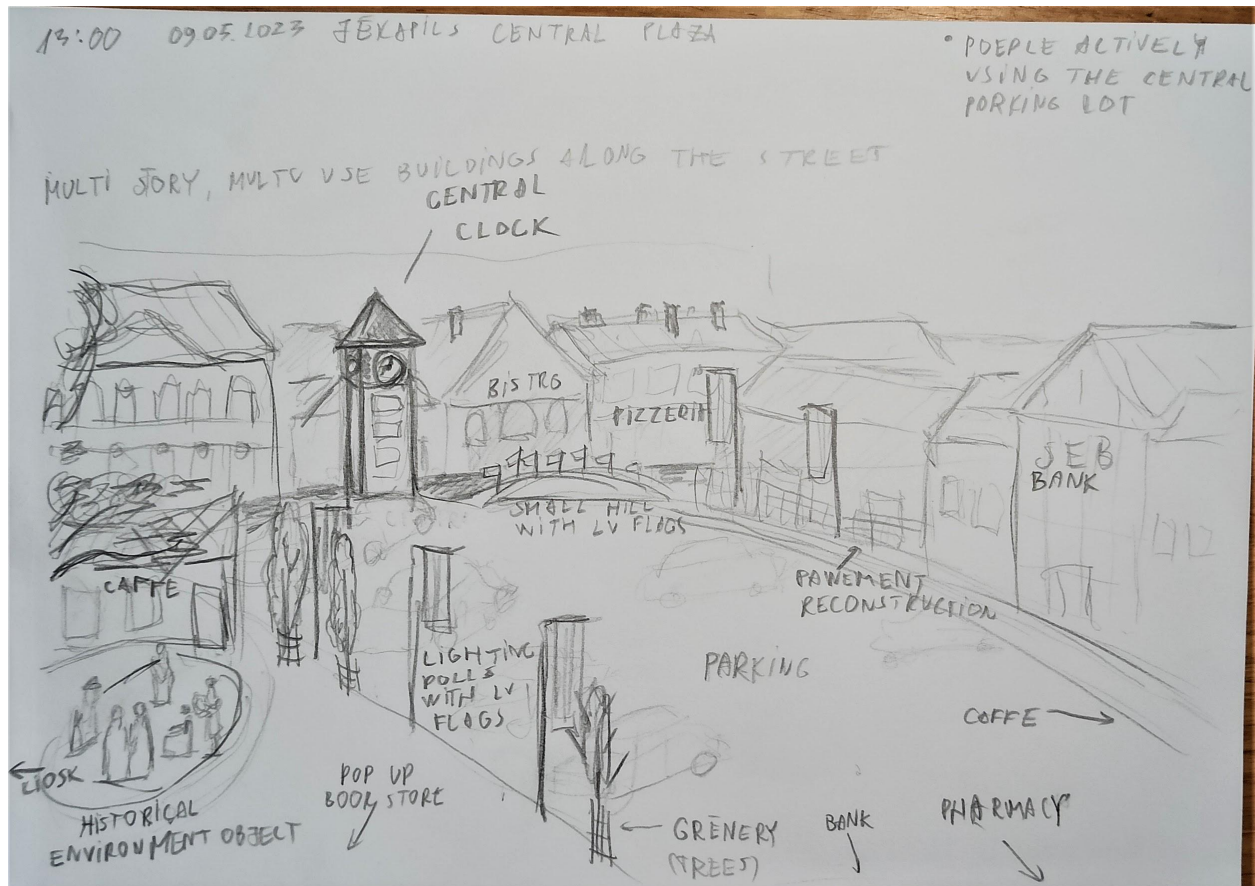 13:00 09.05.2023 JĒKAPILS CENTRAL PLAZA
• POEPLE ACTIVELY
USING THE CENTRAL
PORKING LOT
MULTI STORY, MULTU USE BUILDINGS ALONG THE STREET
CENTRAL
CLOCK
BISTRO
PIZZERIA
SEB
BANK
SMALL HILL
WITH LV FLAGS
CAFFE
PAWEMENT
RECONSTRUCTION
LIGHTING
POLLS
WITH LV
FLAGS
PARKING
COFFE
KIOSK
HISTORICAL
ENVIRONMENT OBJECT
POP UP
BOOK STORE
GRĒNERY
(TREES)
BANK
PHARMACY